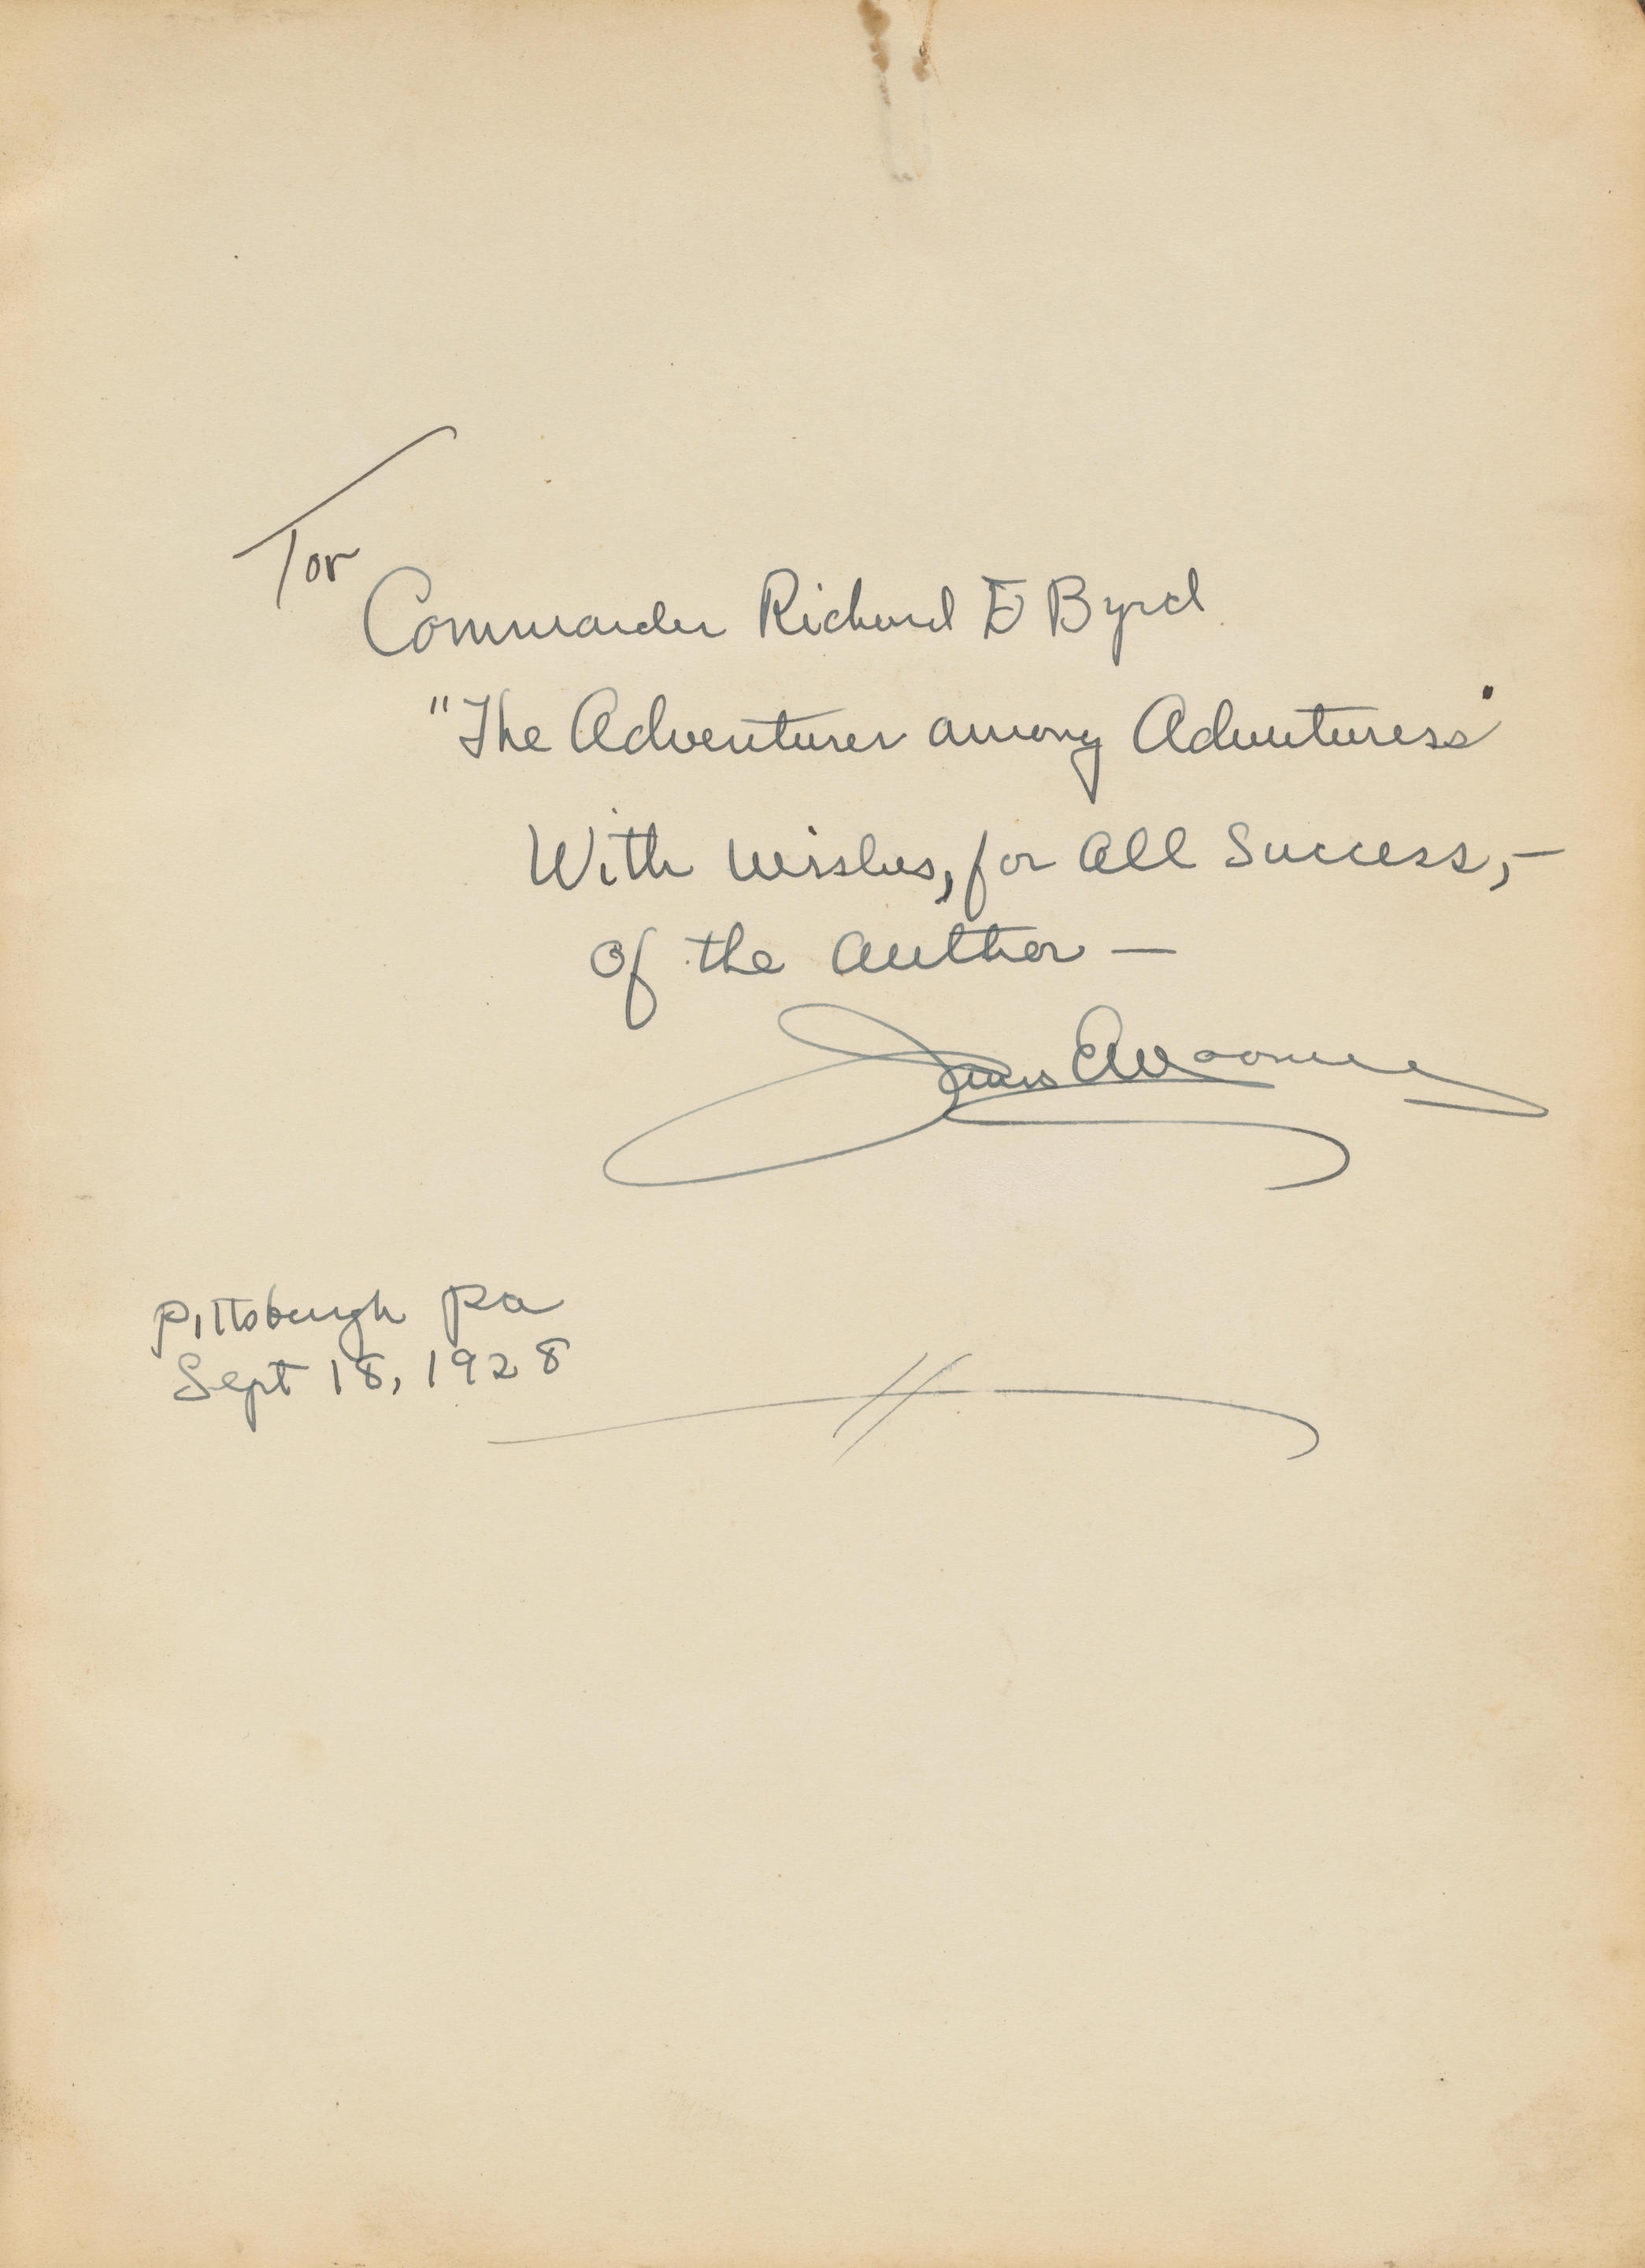 To
Commander Richard E Byrd
"The Adventurer among Adventurers"
With wishes, for all Success,—
of the author —
Pittsburgh Pa
Sept 18, 1928